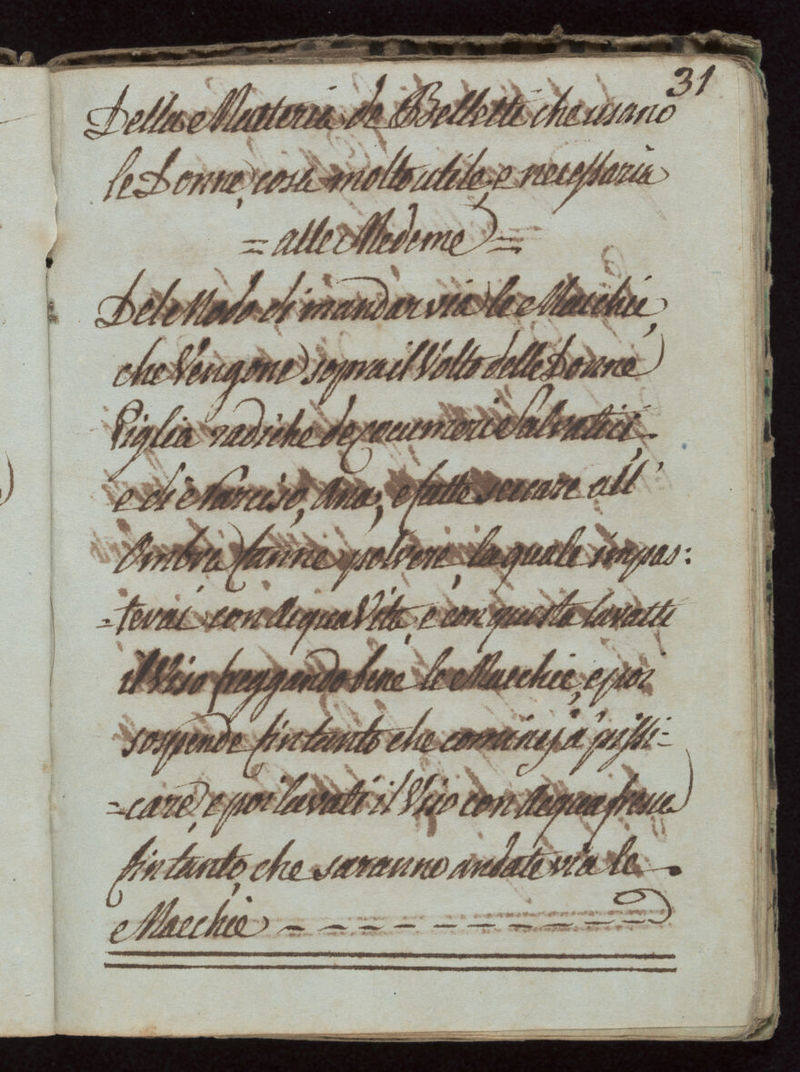 31
Della Matteria de Belletti che usano
le Donne, cosa molto utile, e necessaria
= alle Medeme =
Del Modo di mandar via le Macchie,
che Vengone sopra il Volto delle Donne
Piglia radiche de cocumeri Salvatici
e di Narciso, Ana, e fatte seccare all'
Ombra fanne polvere, la quale impas:
=terai con Acqua Vite, e con questa lavatti
il Viso freggando bene le Macchie, e poi
sospende fin tanto che cominci à pissi=
=care, e poi lavati il Viso con Acqua fresca
fin tanto, che saranno andate via le
Macchie